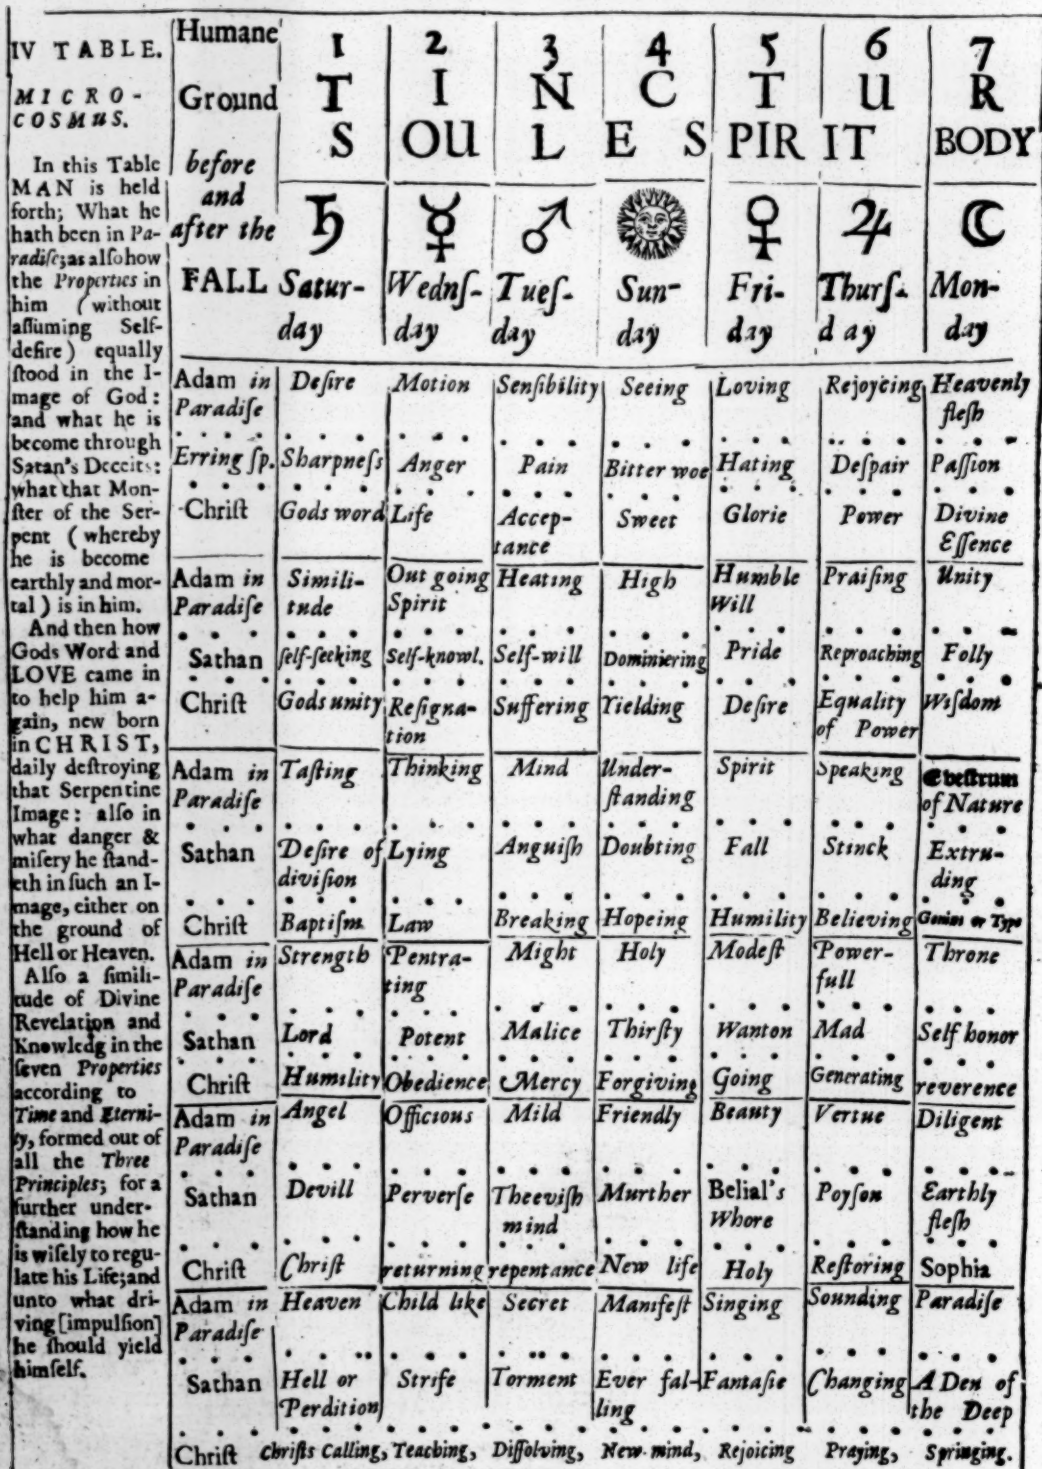 IV TABLE.
MICRO-
COSMUS.
In this Table
MAN is held
forth; What he
hath been in Pa-
radiſe; as alſo how
the Properties in
him (without
aſſuming Self-
deſire) equally
ſtood in the I-
mage of God:
and what he is
become through
Satan's Deceits:
what that Mon-
ſter of the Ser-
pent (whereby
he is become
earthly and mor-
tal) is in him.
And then how
Gods Word and
LOVE came in
to help him a-
gain, new born
in CHRIST,
daily deſtroying
that Serpentine
Image: alſo in
what danger &
miſery he ſtand-
eth in ſuch an I-
mage, either on
the ground of
Hell or Heaven.
Alſo a ſimili-
tude of Divine
Revelation and
Knowledg in the
ſeven Properties
according to
Time and Eterni-
ty, formed out of
all the Three
Principles; for a
further under-
ſtanding how he
is wiſely to regu-
late his Life; and
unto what dri-
ving [impulſion]
he ſhould yield
himſelf.
Humane
Ground
before
and
after the
FALL
1 2 3 4 5 6 7
T I N C T U R
S OU L E S PIR IT BODY
♄ ☿ ♂ ♀ ♃ ☾
Satur- Wednſ- Tueſ- Sun- Fri- Thurſ- Mon-
day day day day day day day
Adam in Deſire Motion Senſibility Seeing Loving Rejoycing Heavenly
Paradiſe fleſh
Erring ſp. Sharpneſs Anger Pain Bitter woe Hating Deſpair Paſſion
Chriſt Gods word Life Accep- Sweet Glorie Power Divine
tance Eſſence
Adam in Simili- Out going Heating High Humble Praiſing Unity
Paradiſe tude Spirit Will
Sathan ſelf-ſeeking Self-knowl. Self-will Dominiering Pride Reproaching Folly
Chriſt Gods unity Reſigna- Suffering Yielding Deſire Equality Wiſdom
tion of Power
Adam in Taſting Thinking Mind Under- Spirit Speaking Eveſtrum
Paradiſe ſtanding of Nature
Sathan Deſire of Lying Anguiſh Doubting Fall Stinck Extru-
diviſion ding
Chriſt Baptiſm Law Breaking Hopeing Humility Believing Genius or Type
Adam in Strength Pentra- Might Holy Modeſt Power- Throne
Paradiſe ting full
Sathan Lord Potent Malice Thirſty Wanton Mad Self honor
Chriſt Humility Obedience Mercy Forgiving Going Generating reverence
Adam in Angel Officious Mild Friendly Beauty Vertue Diligent
Paradiſe
Sathan Devill Perverſe Theeviſh Murther Belial's Poyſon Earthly
mind Whore fleſh
Chriſt Chriſt returning repentance New life Holy Reſtoring Sophia
Adam in Heaven Child like Secret Manifeſt Singing Sounding Paradiſe
Paradiſe
Sathan Hell or Strife Torment Ever fal- Fantaſie Changing A Den of
Perdition ling the Deep
Chriſt Chriſts Calling, Teaching, Diſſolving, New-mind, Rejoicing Praying, Springing.